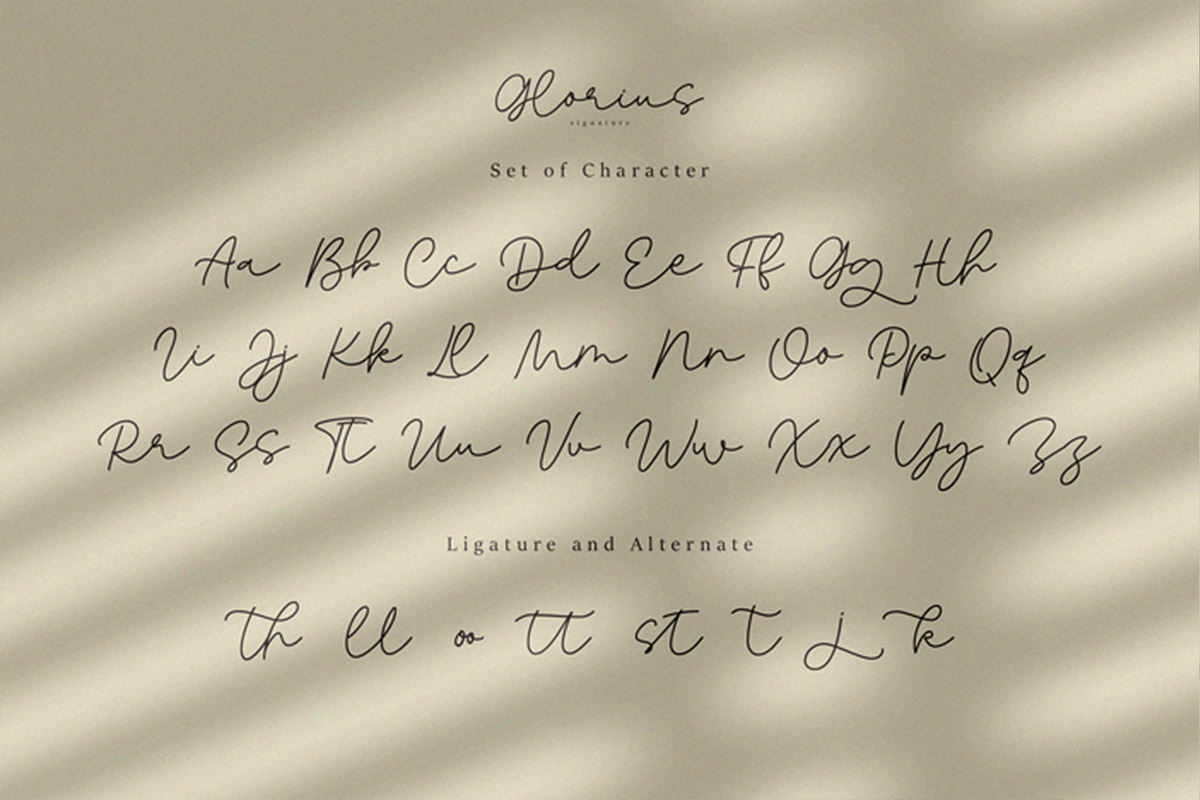 Glorius
signature
Set of Character
Aa Bb Cc Dd Ee Ff Gg Hh
Ii Jj Kk Ll Mm Nn Oo Pp Qq
Rr Ss Tt Uu Vv Ww Xx Yy Zz
Ligature and Alternate
th ll oo tt st t j k